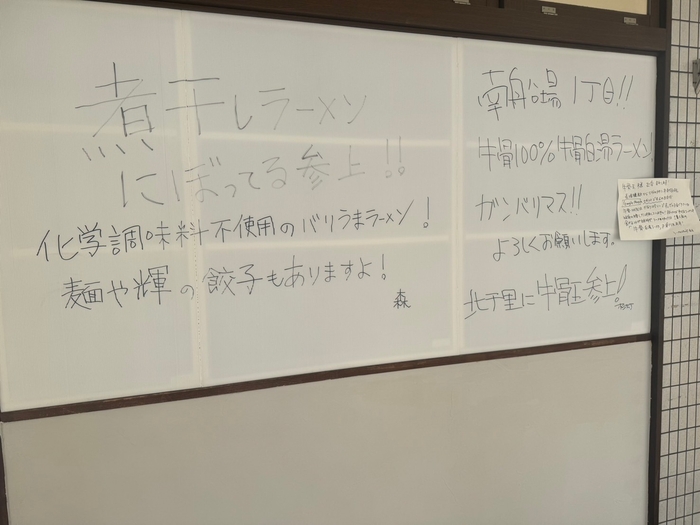 煮干しラーメン
にぼってる参上!!
化学調味料不使用のバリうまラーメン!
麺や輝の餃子もありますよ!
森
南船場1丁目!!
牛骨100%牛骨白湯ラーメン!
ガンバリマス!!
よろしくお願いします。
北千里に牛骨王参上!